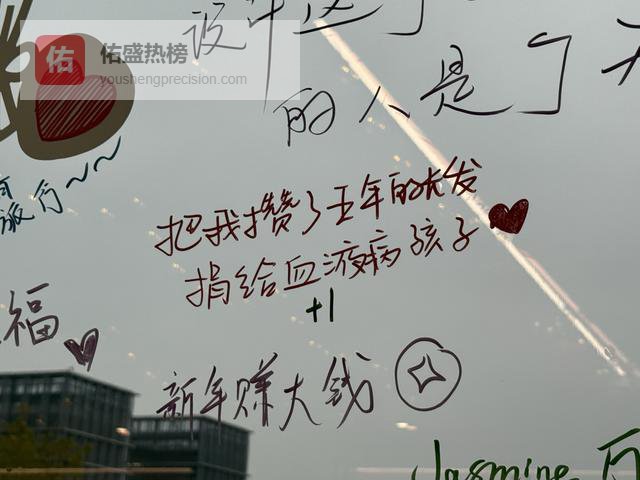 佑
佑盛热榜
youshengprecision.com
的人是了
把我攒了五年的长发
捐给血液病孩子
+1
福
新年赚大钱
Jasmine